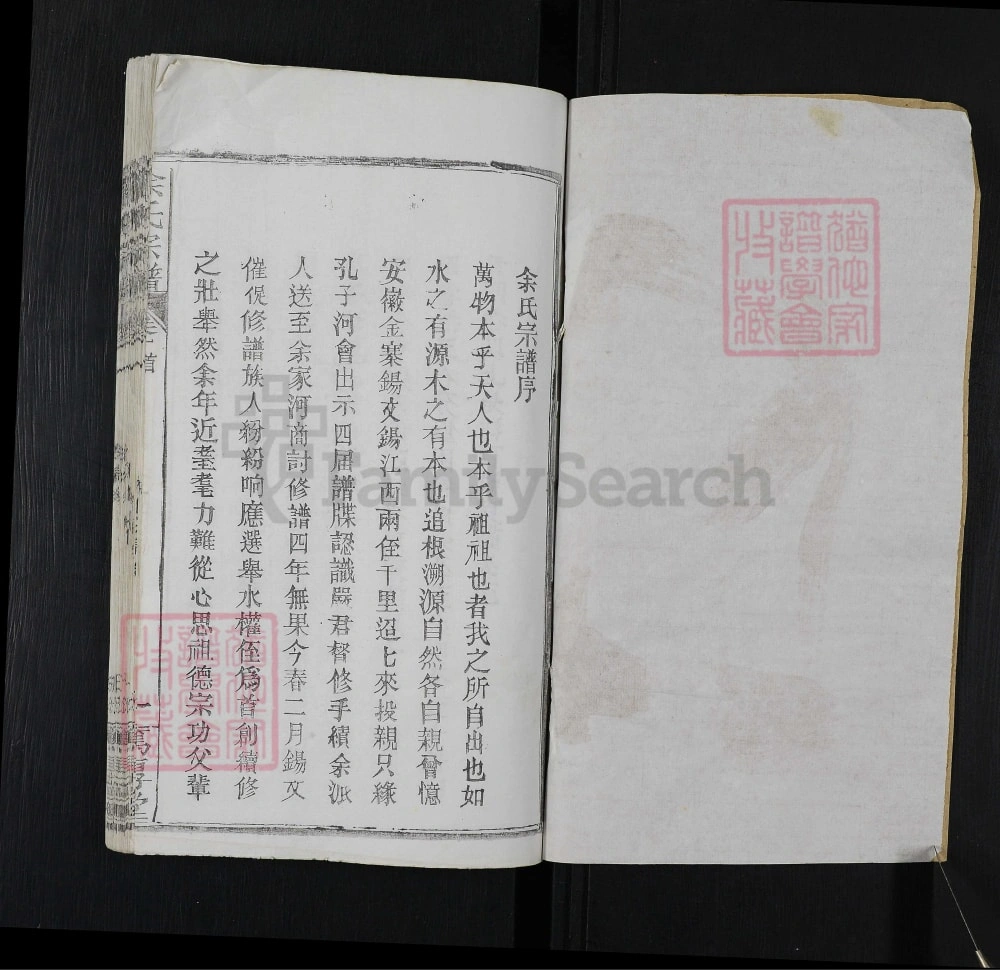 余氏宗譜序
萬物本乎天人也本乎祖祖也者我之所自出也如
水之有源木之有本也追根溯源自然各自親曾憶
安徽金寨錫文錫江西兩侄千里迢七來投親只緣
孔子河會出示四届譜牒認識嚴君督修手續余派
人送至余家河商討修譜四年無果今春二月錫文
催促修譜族人紛紛响應選舉水權侄爲首創續修
之壯舉然余年近耄耋力難從心思祖德宗功父輩
余氏宗譜
卷首
一
FamilySearch
譜學會
收藏